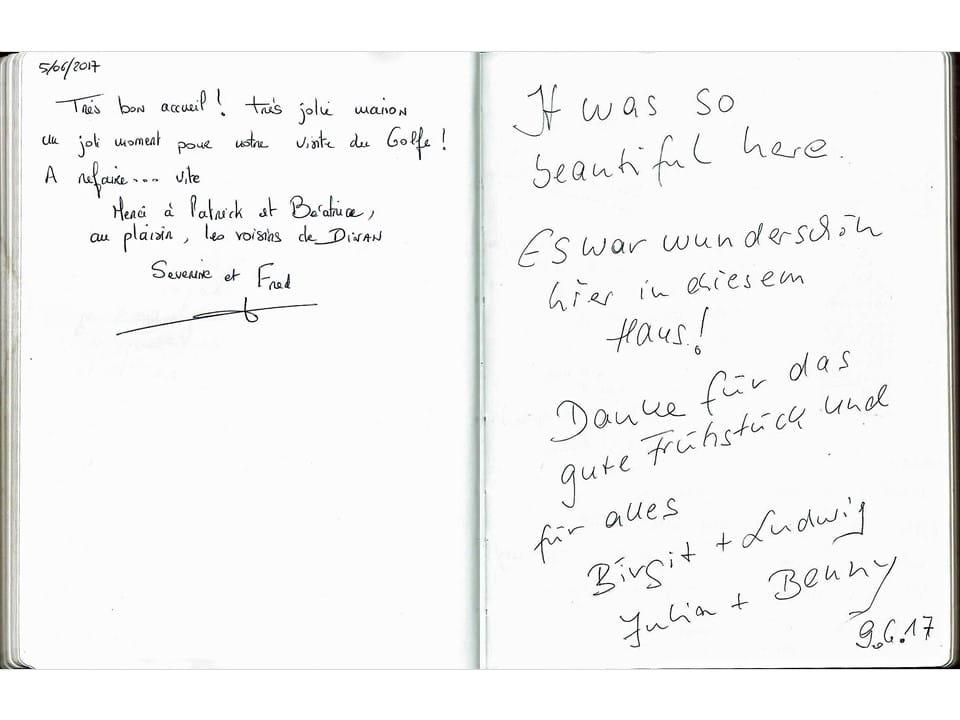 5/06/2017
Très bon accueil ! très jolie maison
un joli moment pour notre visite du Golfe !
A refaire... vite
Merci à Patrick et Béatrice,
au plaisir, les voisins de DINAN
Severine et Fred
It was so
beautiful here.
Es war wunderschön
hier in diesem
Haus!
Danke für das
gute Frühstück und
für alles
Birgit + Ludwig
Julian + Benny
9.6.17